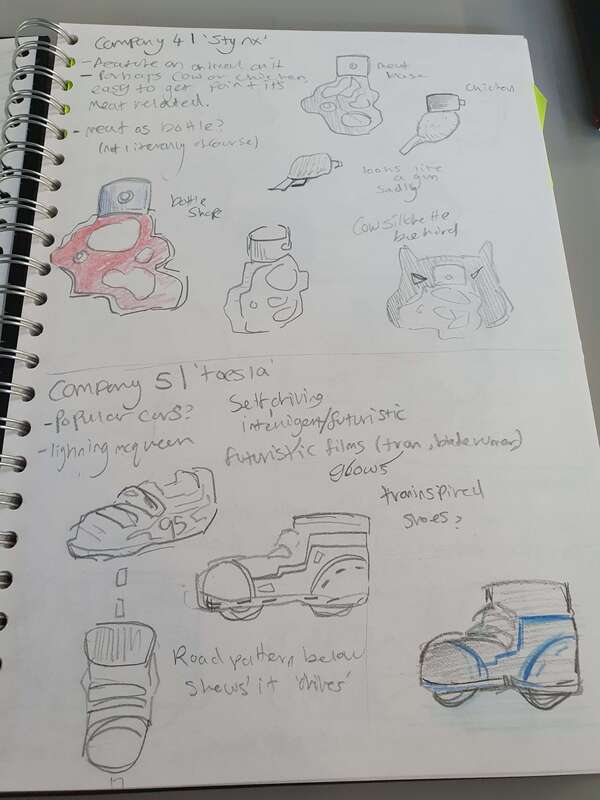 Company 4 | 'Stynx'
- Feature an animal on it
- Perhaps Cow or chicken,
easy to get point its
meat related.
- meat as bottle?
(not literally ofcourse)
meat
base
chicken
looks like
a gun
sadly
bottle
shape
Cow silhette
behind
Company 5 | 'toesla'
- Popular cars?
- lightning mcqueen
Self driving
intelligent/futuristic
futuristic films (tron, bladerunner)
glows
tron inspired
shoes?
95
Road pattern below
shows it 'drives'